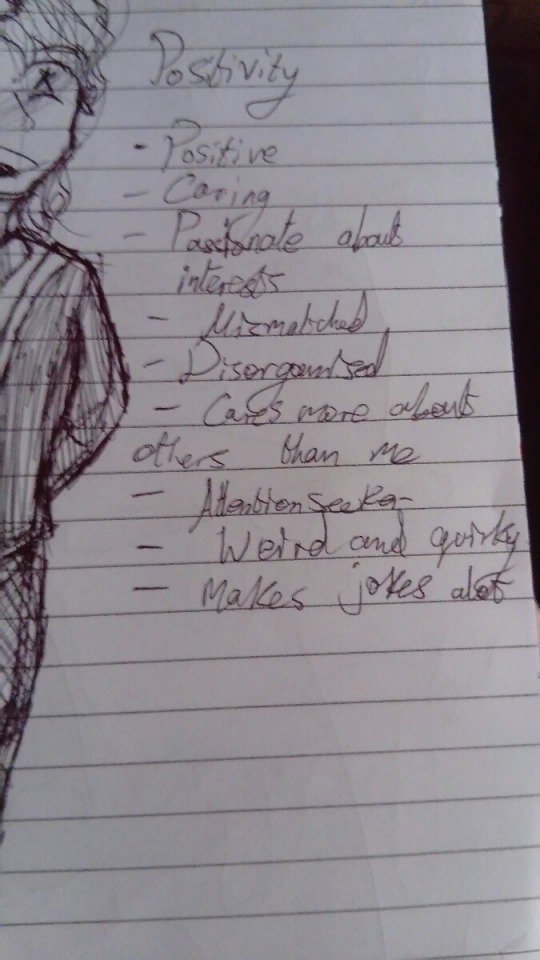 Postivity
- Positive
- Caring
- Passionate about
interests
- Mismatched
- Disorganised
- Cares more about
others than me
- Attention seeker
- Weird and quirky
- Makes jokes alot